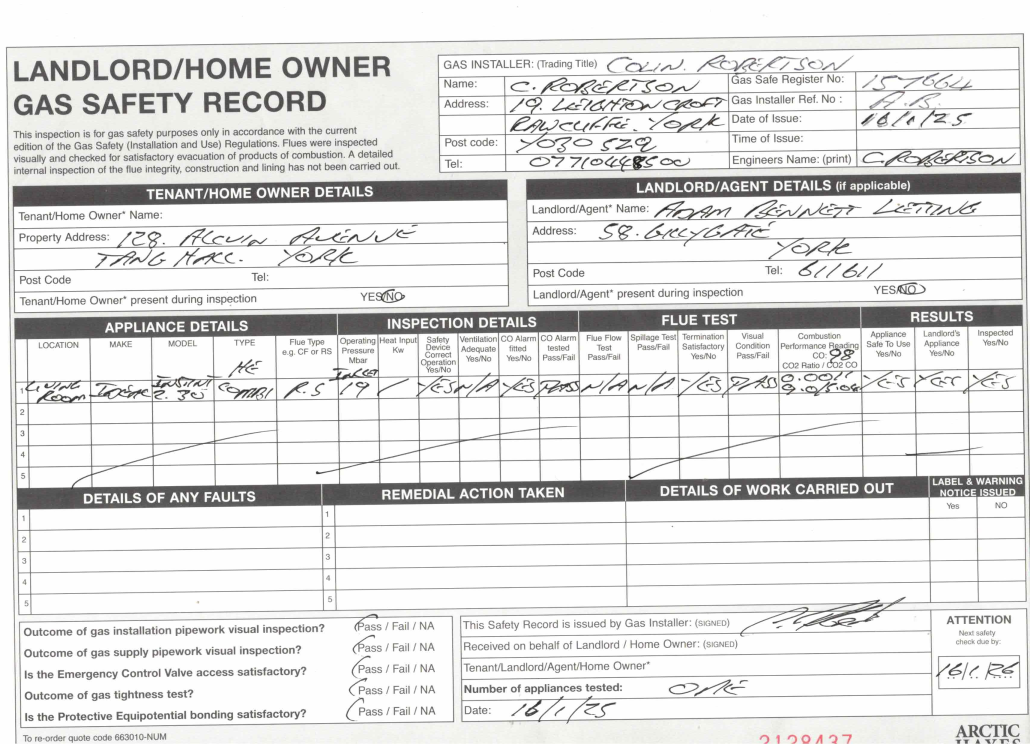 LANDLORD/HOME OWNER
GAS SAFETY RECORD
This inspection is for gas safety purposes only in accordance with the current
edition of the Gas Safety (Installation and Use) Regulations. Flues were inspected
visually and checked for satisfactory evacuation of products of combustion. A detailed
internal inspection of the flue integrity, construction and lining has not been carried out.
GAS INSTALLER: (Trading Title) COLIN. ROBERTSON
Name: C. ROBERTSON Gas Safe Register No: 157664
Address: 19. LEIGHTON CROFT Gas Installer Ref. No : A.B.
RAWCLIFFE. YORK Date of Issue: 16/1/25
Post code: YO30 5ZQ Time of Issue:
Tel: 07710448500 Engineers Name: (print) C.ROBERTSON
TENANT/HOME OWNER DETAILS
Tenant/Home Owner* Name:
Property Address: 128. ALCUIN AVENUE
TANG HALL. YORK
Post Code Tel:
Tenant/Home Owner* present during inspection YES/NO
LANDLORD/AGENT DETAILS (if applicable)
Landlord/Agent* Name: ADAM BENNETT LETTING
Address: 58. GILLYGATE
YORK
Post Code Tel: 611611
Landlord/Agent* present during inspection YES/NO
APPLIANCE DETAILS INSPECTION DETAILS FLUE TEST RESULTS
LOCATION MAKE MODEL TYPE Flue Type e.g. CF or RS Operating Pressure Mbar Heat Input Kw Safety Device Correct Operation Yes/No Ventilation Adequate Yes/No CO Alarm fitted Yes/No CO Alarm tested Pass/Fail Flue Flow Test Pass/Fail Spillage Test Pass/Fail Termination Satisfactory Yes/No Visual Condition Pass/Fail Combustion Performance Reading CO: 98 CO2 Ratio / CO2 CO Appliance Safe To Use Yes/No Landlord's Appliance Yes/No Inspected Yes/No
HE
INLET
1 LIVING ROOM INSTINT 2. 30 COMBI R.S 19 / YES N/A YES PASS N/A N/A YES PASS 0.0011 YES YES YES
2
3
4
5
DETAILS OF ANY FAULTS REMEDIAL ACTION TAKEN DETAILS OF WORK CARRIED OUT LABEL & WARNING NOTICE ISSUED
Yes NO
1 1
2 2
3 3
4 4
5 5
Outcome of gas installation pipework visual inspection? Pass / Fail / NA
Outcome of gas supply pipework visual inspection? Pass / Fail / NA
Is the Emergency Control Valve access satisfactory? Pass / Fail / NA
Outcome of gas tightness test? Pass / Fail / NA
Is the Protective Equipotential bonding satisfactory? Pass / Fail / NA
This Safety Record is issued by Gas Installer: (SIGNED)
Received on behalf of Landlord / Home Owner: (SIGNED)
Tenant/Landlord/Agent/Home Owner*
Number of appliances tested: ONE
Date: 16/1/25
ATTENTION
Next safety
check due by:
16/1.26
To re-order quote code 663010-NUM
2128437
ARCTIC
HAYES